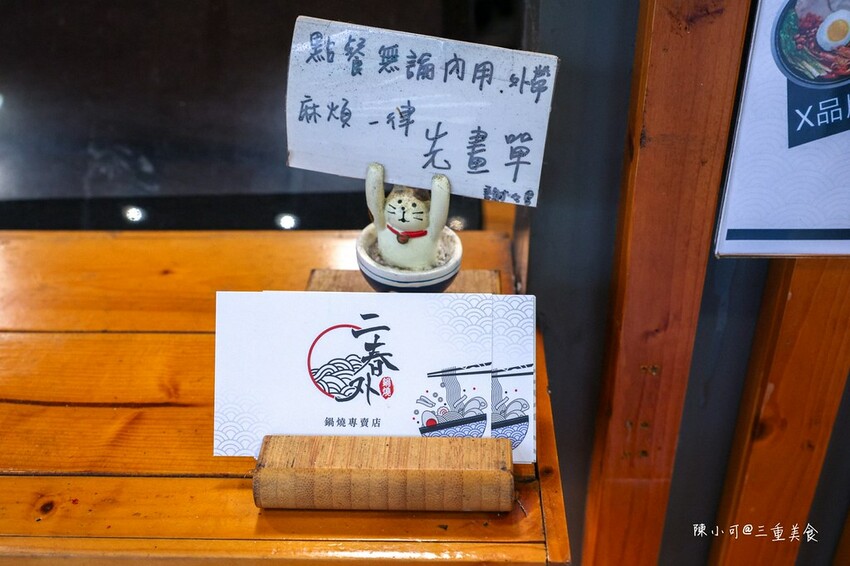 點餐無論內用.外帶
麻煩一律先畫單
謝謝
二春外
鍋燒
鍋燒專賣店
X品
陳小可@三重美食